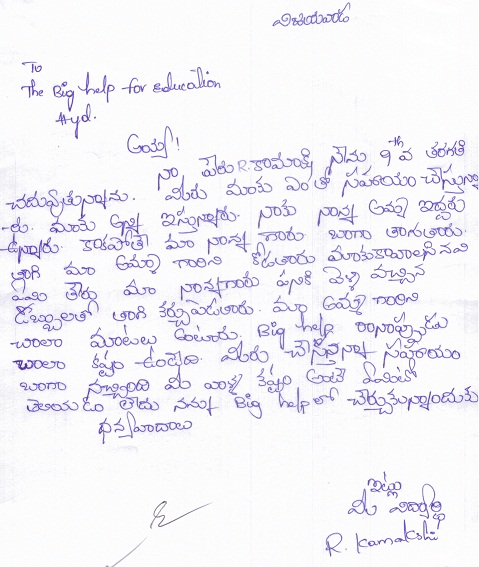 విజయవాడ
To
The Big help for education
Hyd.
అయ్యా!
నా పేరు R.కామాక్షి నేను 9th వ తరగతి
చదువుతున్నాను. మీరు మాకు ఎంతో సహాయం చేస్తున్నా
రు. మాకు అన్ని ఇస్తున్నారు. నాకు నాన్న అమ్మ ఇద్దరు
ఉన్నారు. కాకపోతే మా నాన్న గారు బాగా తాగుతారు.
తాగి మా అమ్మ గారిని కొడతారు మాకుకావాలసినవి
ఏమి తేరు మా నాన్నగారు పనికి వెళ్ళి వచ్చిన
డబ్బులతో తాగి ఖర్చుపెడతారు. మా అమ్మ గారిని
చాలా మాటలు అంటారు. Big help రానప్పుడు
చాలా కష్టం ఉండేది. మీరు చేస్తున్న సహాయం
బాగా నచ్చింది మీ వల్ల కష్టం అంటే ఏమిటో
తెలియడం లేదు నన్ను Big help లో చేర్చుకున్నందుకు
ధన్యవాదాలు
ఇట్లు
మీ విద్యార్థి
R. Kamakshi